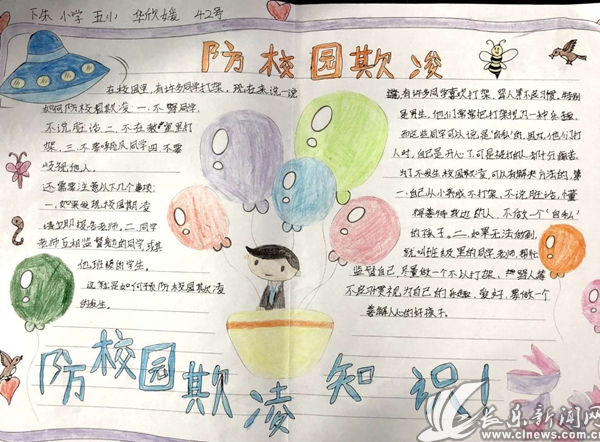 下朱 小学 五小 华欣媛 42号
防校园欺凌
在校园里,有许多同学打架,现在来说一说
如何防校园欺凌:一.不骂同学.
不说脏话 二.不在教室里打
架,三.不要嘲讽同学 四.不要
歧视他人.
还需要注意以下几个事项:
一.如果发现校园欺凌
请立即报告老师,二.同学
老师互相监督
他班级的学生.
这就是如何预防校园欺凌
的发生.
有许多同学喜欢打架,骂人等不良习惯.特别
是男生,他们常常把打架视为一种乐趣,
而这些同学可以说是"自私"的.因为,他们打
人时,自己是开心了,可是被打的人却十分痛苦.
为了不发生校园欺凌,可以有解决方法的,第
一:自己从小养成不打架,不说脏话,懂
得善待身边的人,不做一个"自私"
的孩子.二:如果无法做到,
就叫班级里的同学,老师,帮忙
监督自己,尽量做一个不以打架,骂人等
不良习惯视为自己的乐趣,爱好.要做一个
善解人心的好孩子.
防校园欺凌知识!
长乐新闻网
www.clnews.com.cn